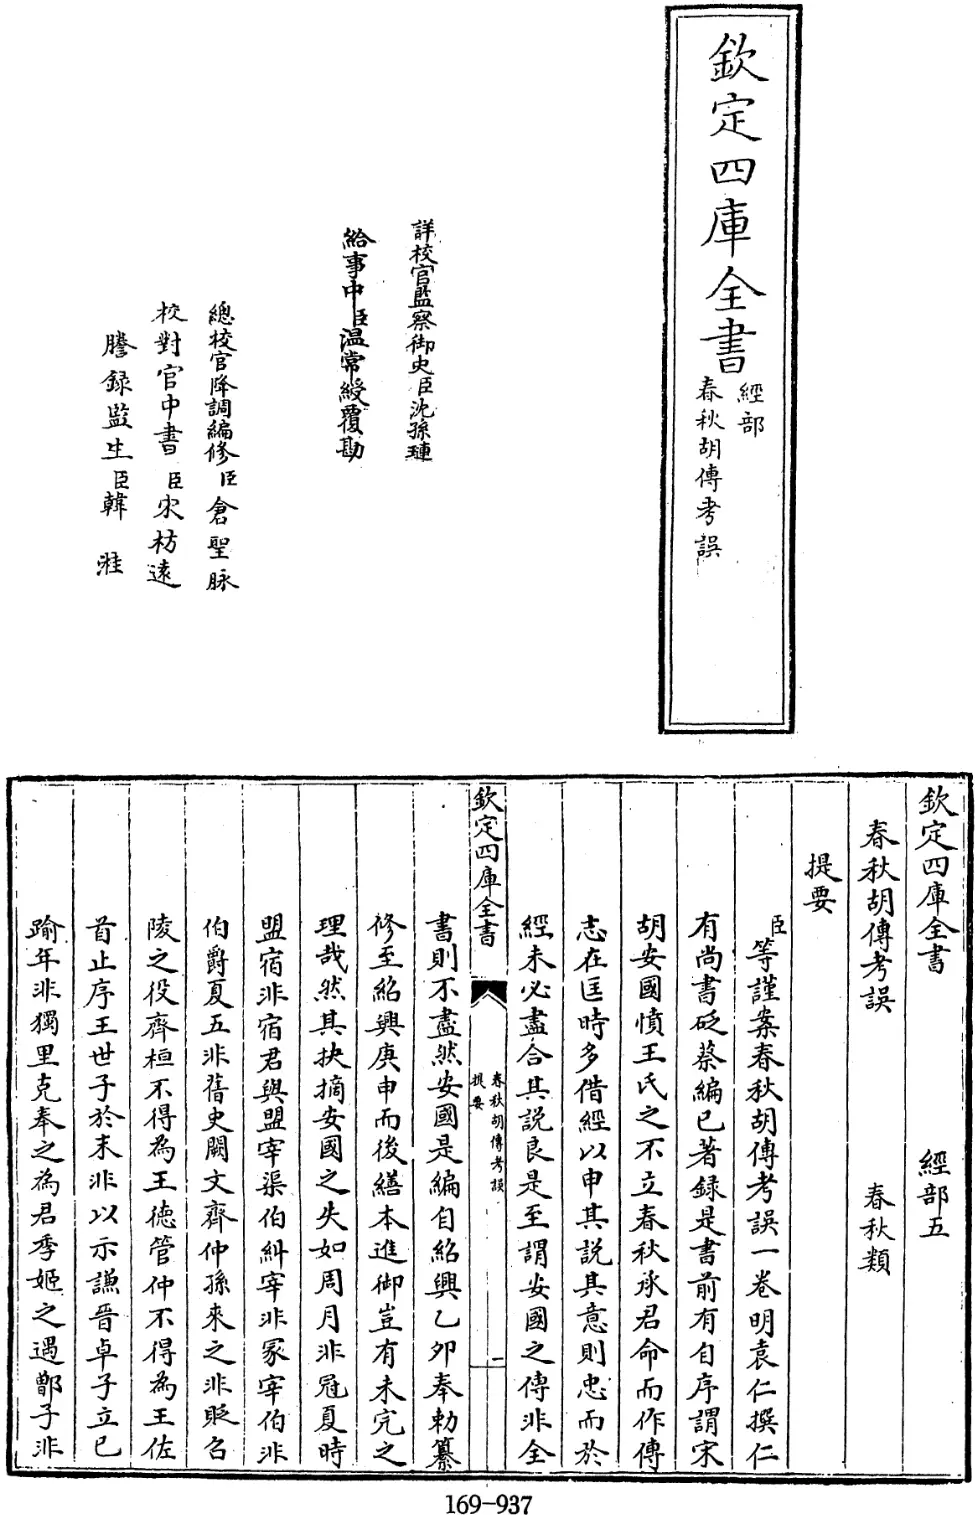 欽定四庫全書
經部
春秋胡傳考誤
詳校官監察御史臣沈孫璉
給事中臣温常綬覆勘
總校官降調編修臣倉聖脉
校對官中書臣宋枋遠
謄録監生臣韓
欽定四庫全書 經部五
春秋胡傳考誤 春秋類
提要
臣等謹案春秋胡傳考誤一卷明袁仁撰仁
有尚書砭蔡編已著録是書前有自序謂宋
胡安國憤王氏之不立春秋承君命而作傳
志在匡時多借經以申其説其意則忠而於
經未必盡合其説良是至謂安國之傳非全
欽定四庫全書
春秋胡傳考誤
提要
一
書則不盡然安國是編自紹興乙夘奉勅纂
修至紹興庚申而後繕本進御豈有未完之
理哉然其抉摘安國之失如周月非冠夏時
盟宿非宿君與盟宰渠伯糾宰非冢宰伯非
伯爵夏五非舊史闕文齊仲孫來之非貶召
陵之役齊桓不得為王徳管仲不得為王佐
首止序王世子於末非以示謙晉卓子立已
踰年非獨里克奉之為君季姬之遇鄫子非
169-937